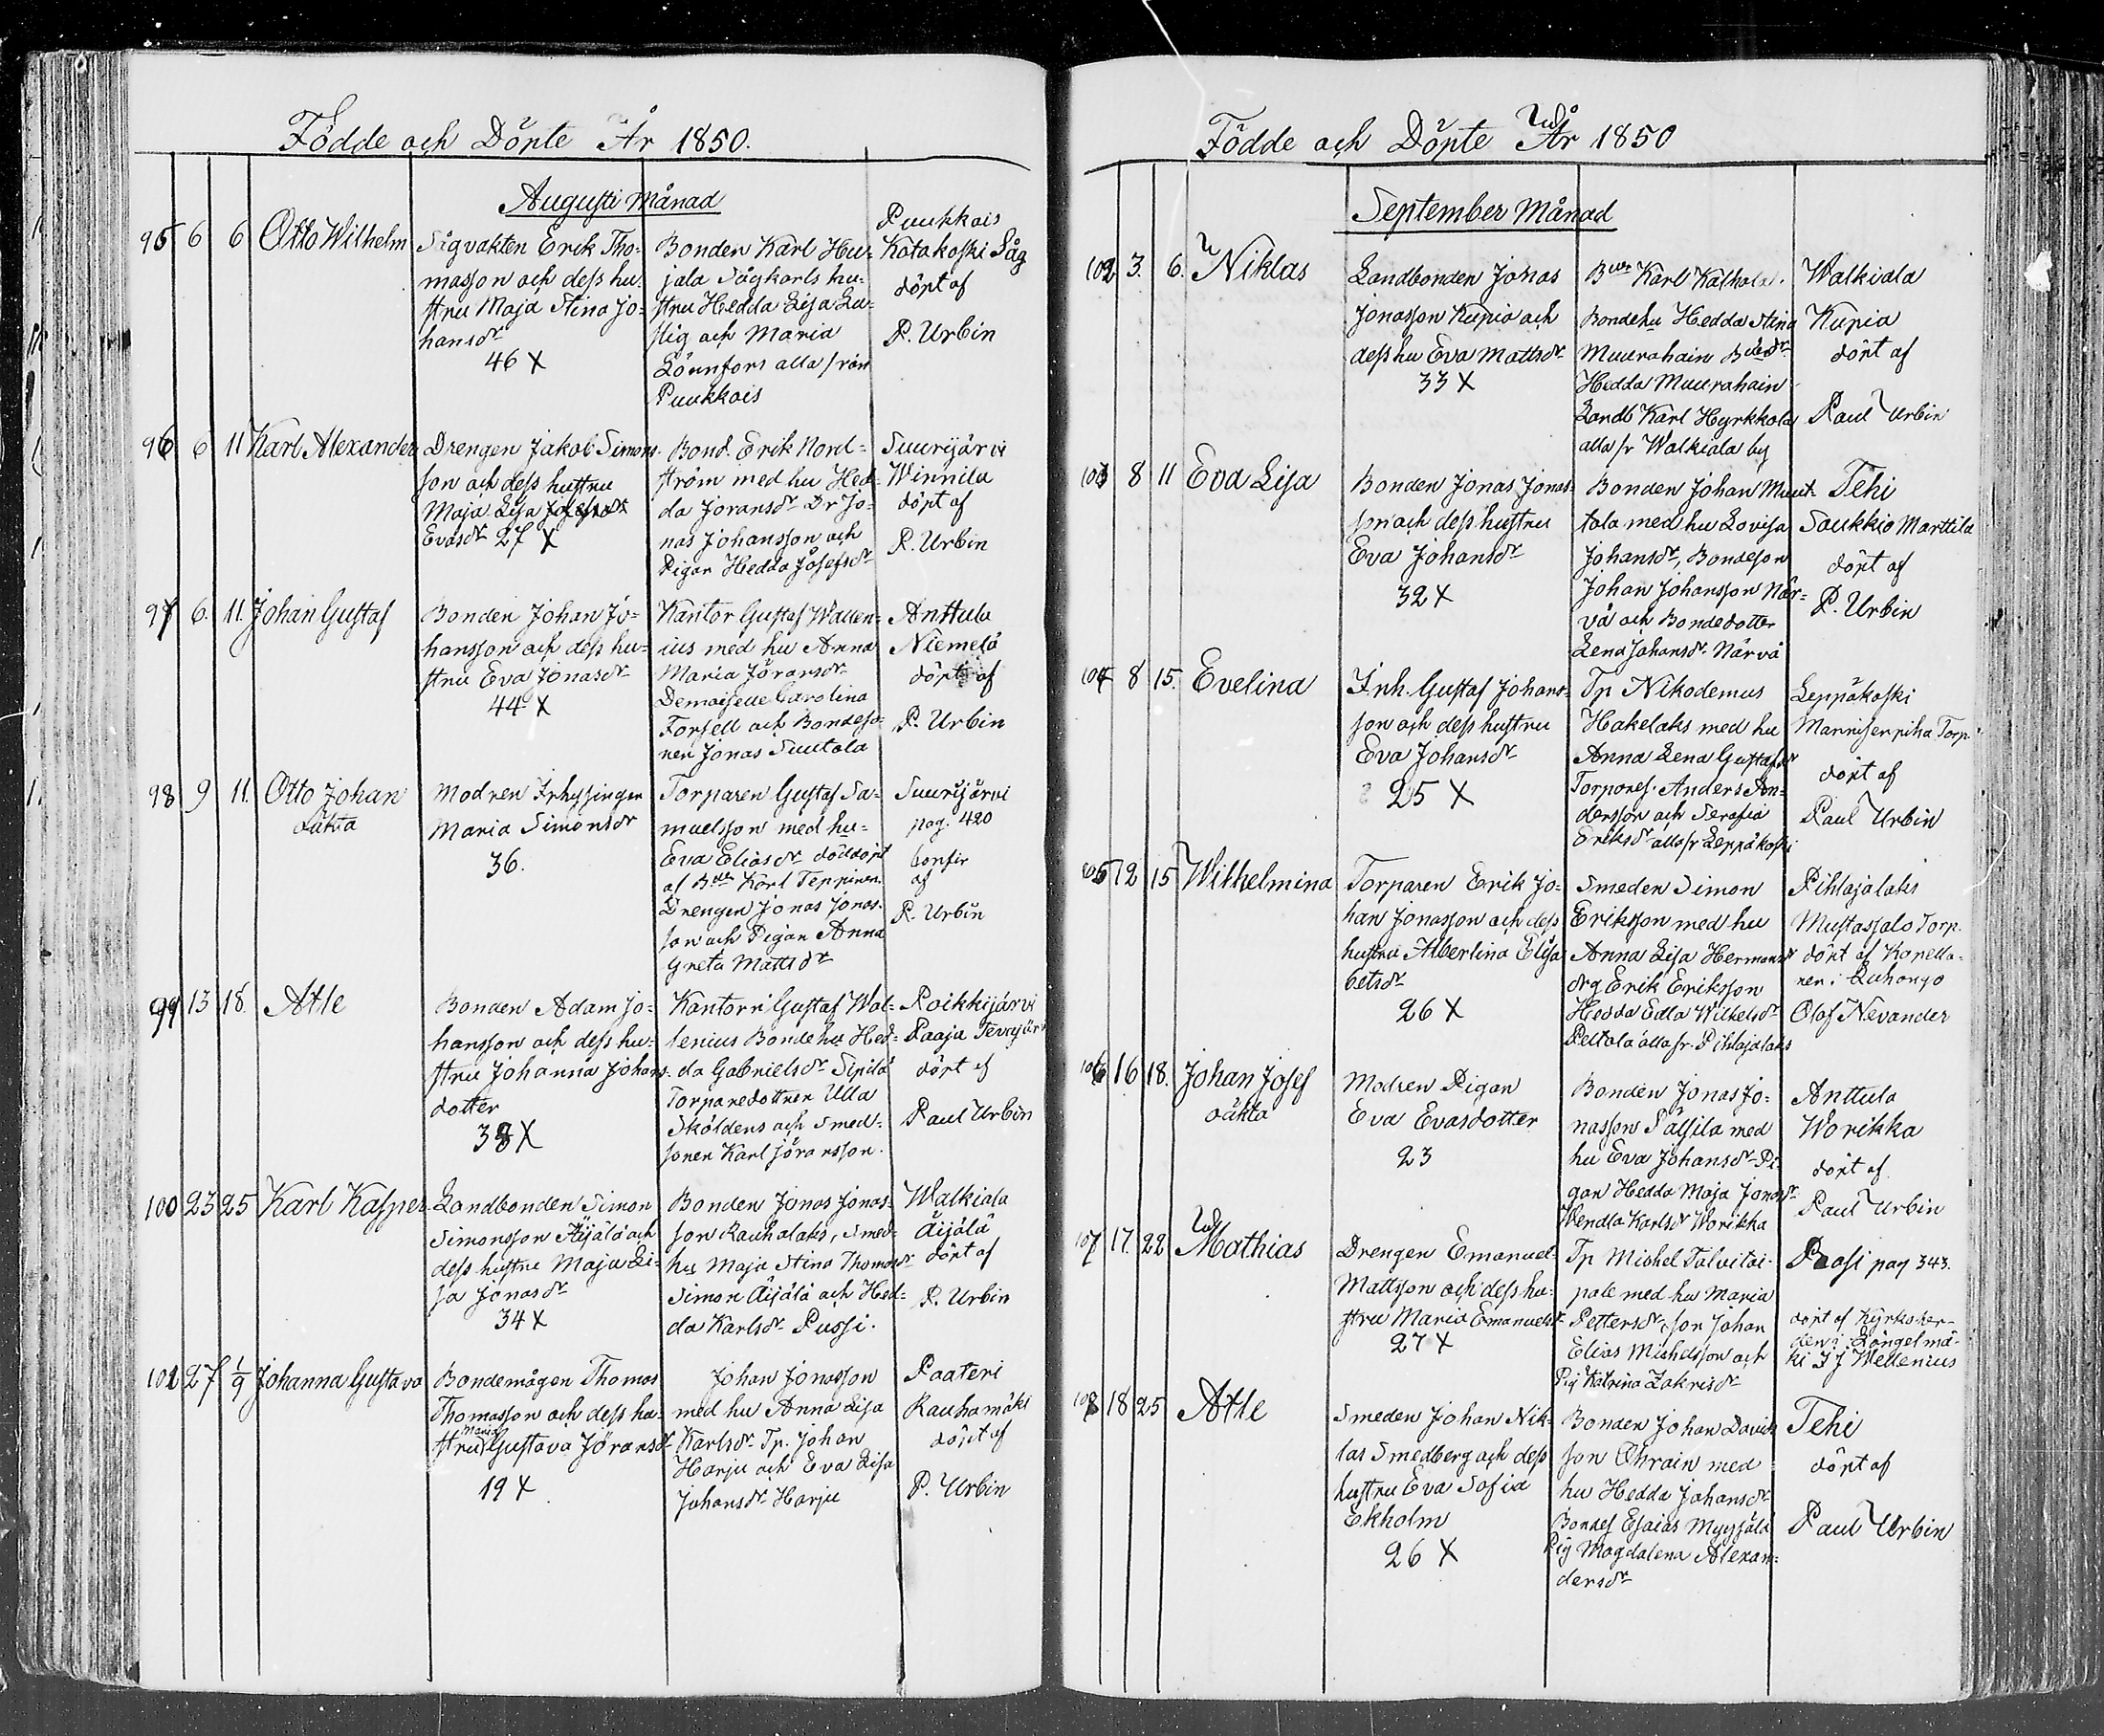 Födde och Döpte År 1850.
Augusti Månad
95 6 6 Otto Wilhelm
Sågvakten Erik Tho=
masson och dess hu=
stru Maja Stina Jo=
hansdr
46 X
Bonden Karl Hu=
jala Sågkarls hu=
stru Hedda Lisa Lu=
stig och Maria
Lönnfors alla från
Puukkois
Puukkois
Katakoski Såg
döpt af
P. Urbin
96 6 11 Karl Alexander
Drengen Jakob Simons
son och dess hustru
Maja Lisa
Evasdr 27 X
Bond. Erik Nord=
ström med hu Hed=
da Joransdr Dr Jo=
nas Johansson och
Pigan Hedda Josefsdr
Suurijärvi
Winnila
döpt af
P. Urbin
97 6. 11. Johan Gustaf
Bonden Johan Jo=
hansson och dess hu=
stru Eva Jonasdr
44 X
Kantor Gustaf Wallen=
ius med hu Anna
Maria Jöransdr
Demoiselle Carolina
Forsell och Bondeso=
nen Jonas Suutala
Anttula
Niemelä
döpt af
P. Urbin
98 9 11. Otto Johan
oäkta
Modren Inhysingen
Maria Simonsdr
36.
Torparen Gustaf Sa=
muelsson med hu=
Eva Eliasdr döddöpt
af Bden Karl Teppinen.
Drengen Jonas Jonas=
son och Pigan Anna
Greta Mattsdr
Suurijärvi
pag. 420
confir
af
P. Urbin
99 13 18. Atle
Bonden Adam Jo=
hansson och dess hu=
stru Johanna Johans=
dotter
38 X
Kantorn Gustaf Wal=
lenius Bondehu Hed=
da Gabrielsdr Sipilä
Torparedottren Ulla
Sköldens och Smed=
sonen Karl Jöransson.
Poikkijärvi
Paaja Tevajärvi
döpt af
Paul Urbin
100 23 25 Karl Kasper
Landbonden Simon
Simonsson Äijälä och
dess hustru Maja Li=
sa Jonasdr
34 X
Bonden Jonas Jonas=
son Rauhalaks, Smed=
hu Maja Stina Thomasdr
Simon Äijälä och Hed=
da Karlsdr Pussi.
Walkiala
Äijälä
döpt af
P. Urbin
101 27 1/9 Johanna Gustava
Bondemågen Thomas
Thomasson och dess hu=
Maria
stru Gustava Jöransdr
19 X
Johan Jonasson
med hu Anna Lisa
Karlsdr Tp. Johan
Harju och Eva Lisa
Johansdr Harju
Paateri
Rauhamäki
döpt af
P. Urbin
Födde och Döpte År 1850
September Månad
102 3. 6. Niklas
Landbonden Jonas
Jonasson Kupia och
dess hu Eva Mattsdr
33 X
Karl Kalhola.
Bondehu Hedda Stina
Muurahain
Hedda Muurahain
Landb Karl Hyrkkola
alla fr Walkiala by
Walkiala
Kupia
döpt af
Paul Urbin
103 8 11 Eva Lisa
Bonden Jonas Jonas=
son och dess hustru
Eva Johansdr
32 X
Bonden Johan Muut=
tala med hu Lovisa
Johansdr, Bondeson
Johan Johansson När=
vä och Bondedotter
Lena Johansdr Närvä
Tehi
Saukkio Marttila
döpt af
P. Urbin
104 8 15. Evelina
Inh. Gustaf Johans=
son och dess hustru
Eva Johansdr
25 X
Tp Nikodemus
Hakelaks med hu
Anna Lena Gustafsdr
Torpares. Anders An=
dersson och Serafia
Eriksdr alla fr Leppäkoski
Leppäkoski
Mannisenpiha Torp
döpt af
Paul Urbin
105 12 15 Wilhelmina
Torparen Erik Jo=
han Jonasson och dess
hustru Albertina Elisa
betsdr
26 X
Smeden Simon
Eriksson med hu
Anna Lisa Hermansdr
drg Erik Eriksson
Hedda Edla Wilhelsdr
Peltola alla fr. Pihlajalaks
Pihlajalaks
Mustassalo Torp.
döpt af Kapella=
nen i Luhango
Olof Nevander
106 16 18. Johan Josef
oäkta
Modren Pigan
Eva Evasdotter
23
Bonden Jonas Jo=
nasson Pälsila med
hu Eva Johansdr Pi=
gan Hedda Maja Jonasdr
Wendla Karlsdr Worikka
Anttula
Worikka
döpt af
Paul Urbin
107 17. 22 Mathias
Drengen Emanuel
Mattsson och dess hu=
stru Maria Emanuelsdr
27 X
Tp Michel Talvitai=
pale med hu Maria
Pettersdr, son Johan
Elias Michelsson och
Pig Katrina Zakrisdr
Paasi pag 343.
döpt af Kyrkoher=
den i Längelmä=
ki I J Wellenius
108 18 25 Atle
Smeden Johan Nik=
las Smedberg och dess
hustru Eva Sofia
Ekholm
26 X
Bonden Johan Davids
son Ohrain med
hu Hedda Johansdr
Bondes Esaias Myysälä
Pig Magdalena Alexan=
dersdr
Tehi
döpt af
Paul Urbin